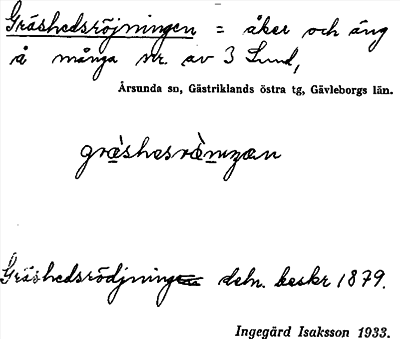 Gräshedsröjningen = åker och äng
å många nr. av 3 Lund,
Årsunda sn, Gästriklands östra tg, Gävleborgs län.
Gräshedsrödjning deln. beskr 1879.
Ingegärd Isaksson 1933.